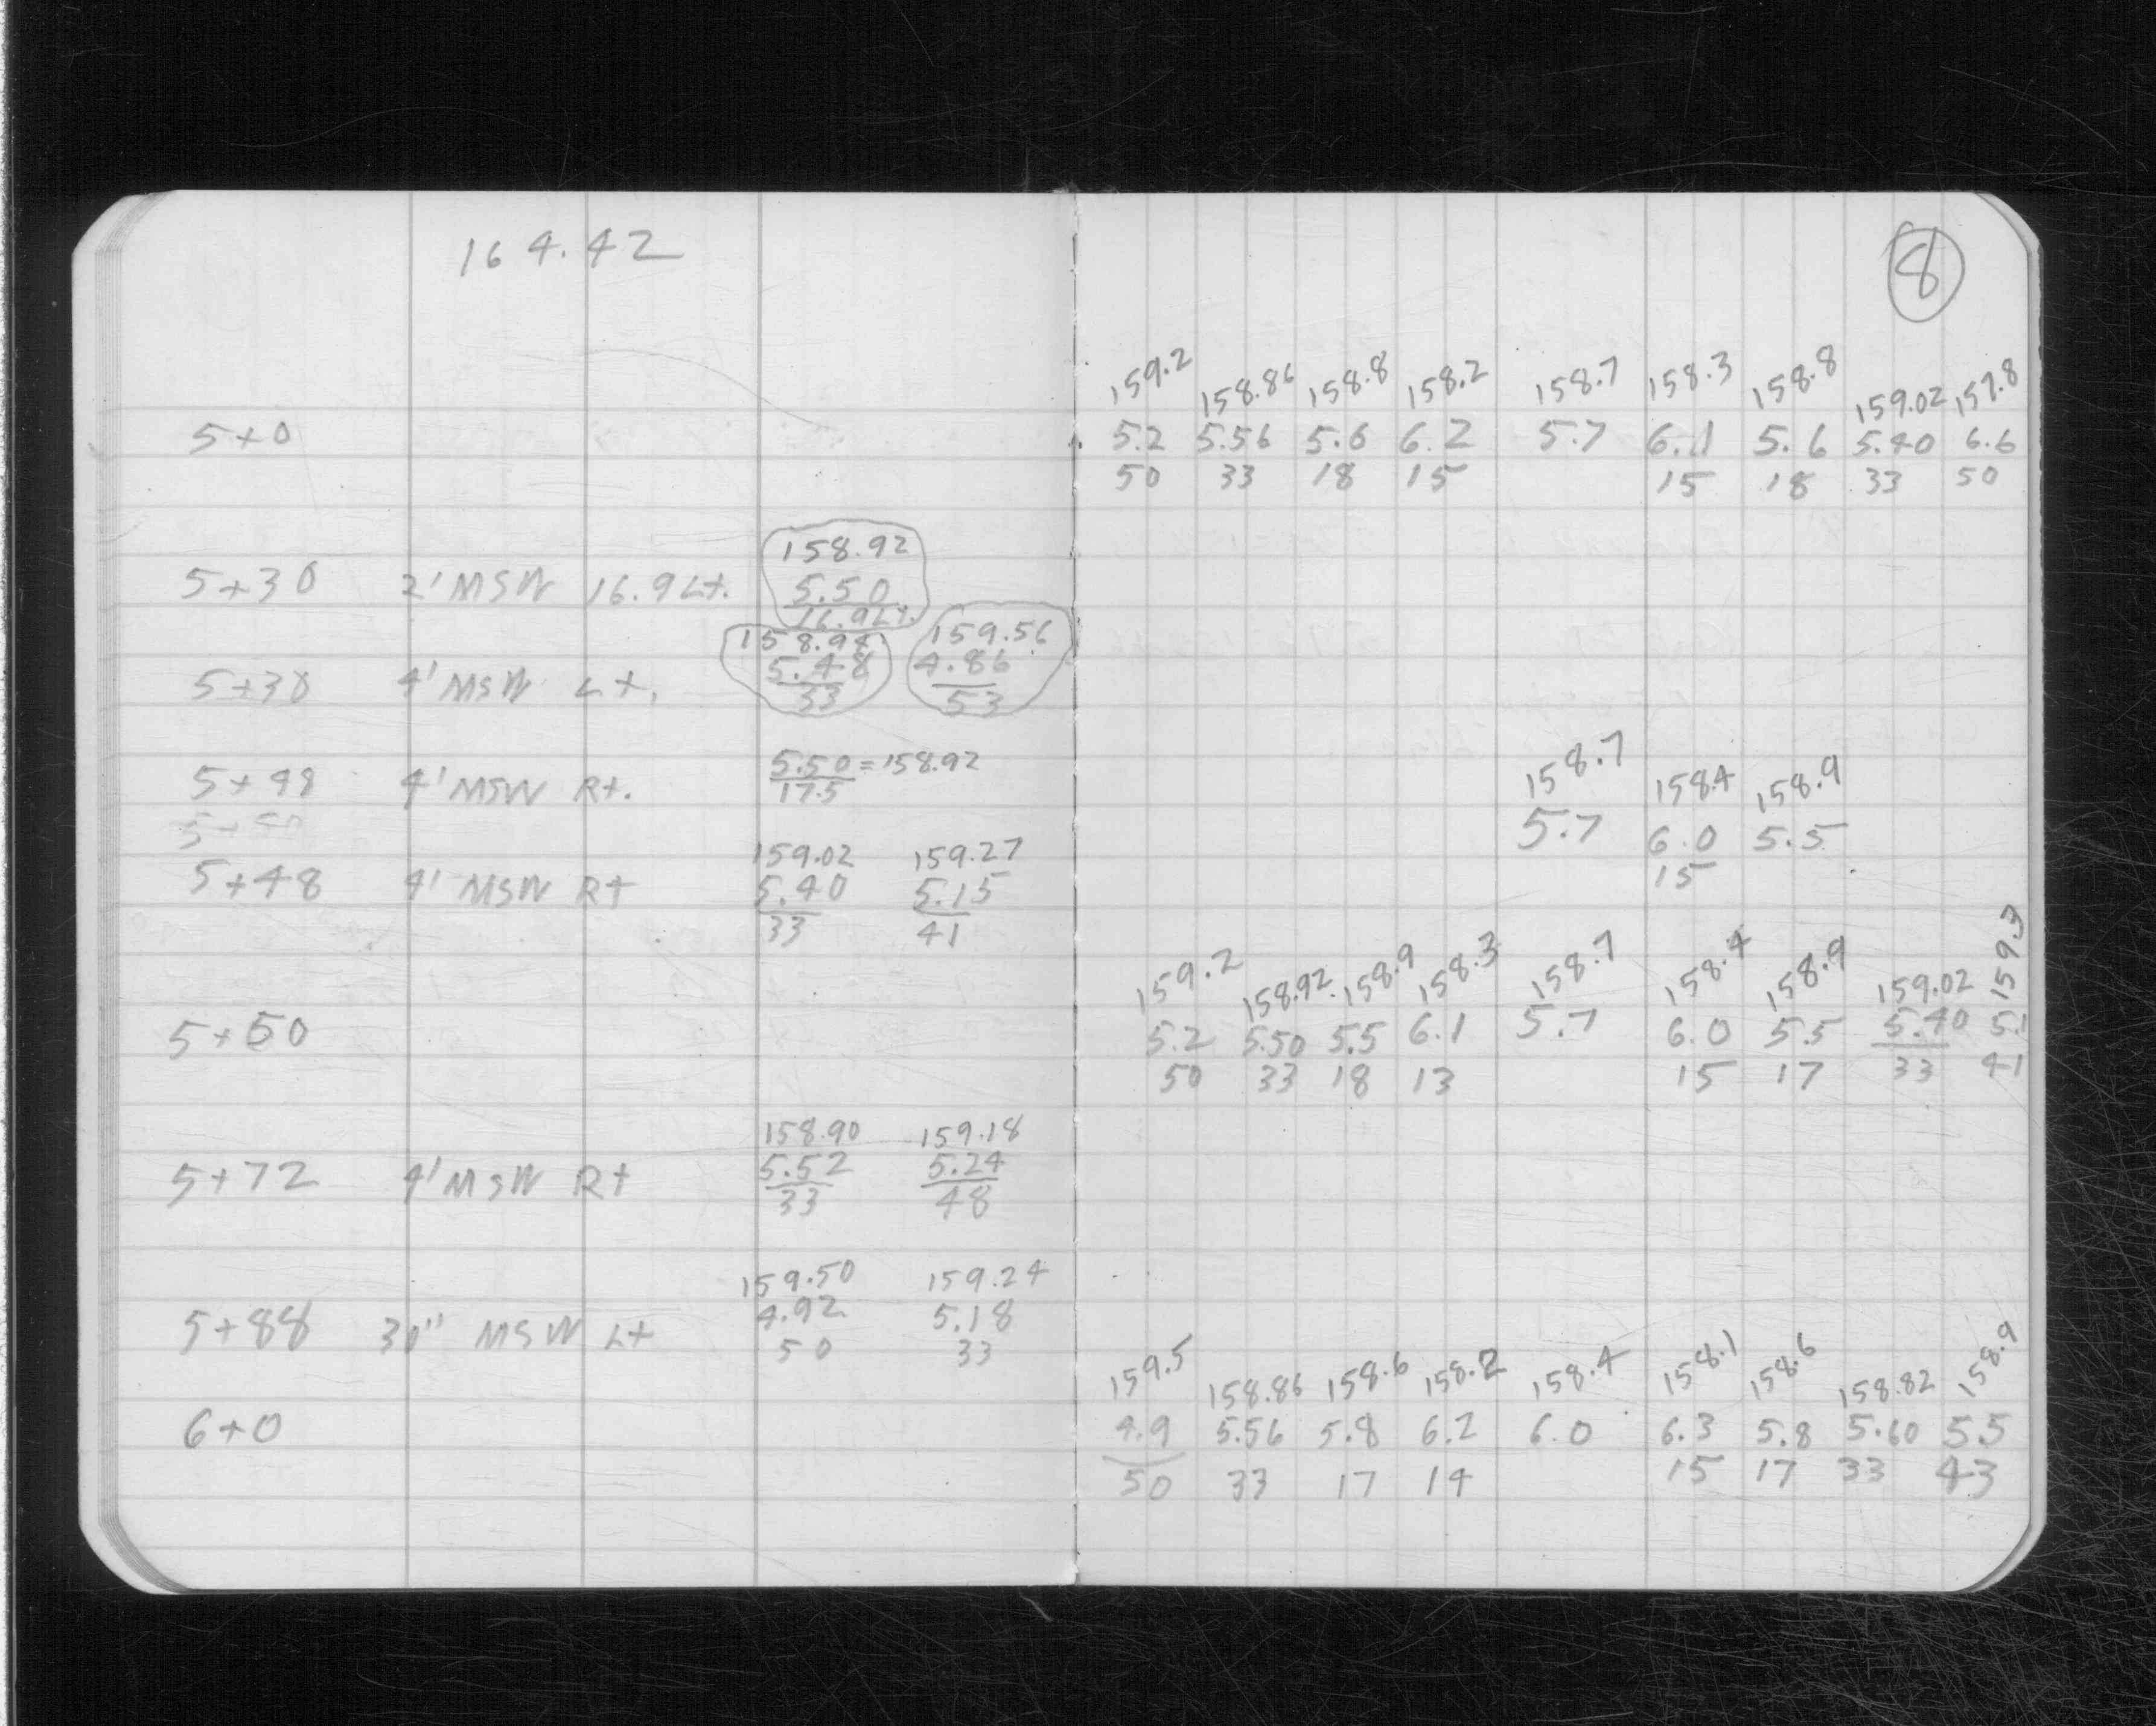 164.42
8
159.2 158.86 158.8 158.2 158.7 158.3 158.8 159.02 157.8
5+0 5.2 5.56 5.6 6.2 5.7 6.1 5.6 5.40 6.6
50 33 18 15 15 18 33 50
158.92
5+30 2' MSW 16.9 Lt. 5.50
16.9 Lt.
158.94 159.56
5+30 4' MSW Lt. 5.48 4.86
33 53
5+48 4' MSW Rt. 5.50 = 158.92
17.5
158.7 158.4 158.9
5.7 6.0 5.5
15
159.02 159.27
5+48 4' MSW Rt 5.40 5.15
33 41
159.2 158.92 158.9 158.3 158.7 158.4 158.9 159.02 159.3
5+50 5.2 5.50 5.5 6.1 5.7 6.0 5.5 5.40 5.1
50 33 18 13 15 17 33 41
158.90 159.18
5+72 4' MSW Rt 5.52 5.24
33 48
159.50 159.24
5+88 30" MSW Lt 4.92 5.18
50 33
159.5 158.86 158.6 158.2 158.4 158.1 158.6 158.82 158.9
6+0 4.9 5.56 5.8 6.2 6.0 6.3 5.8 5.60 5.5
50 33 17 14 15 17 33 43